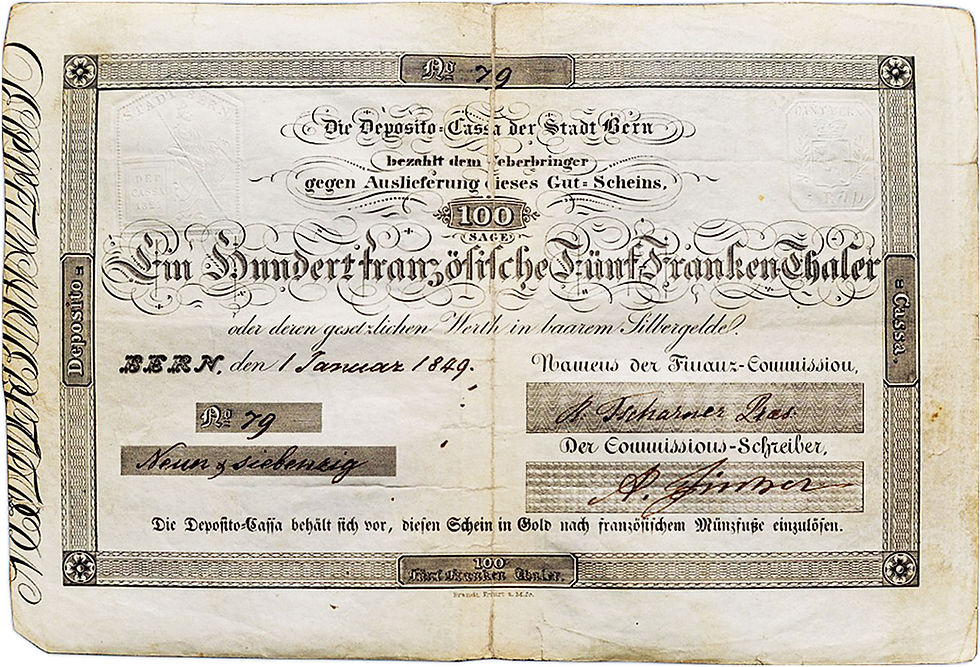 No 79
STADT BERN
Die Deposito=Cassa der Stadt Bern
bezahlt dem Ueberbringer
gegen Auslieferung dieses Gut=Scheins,
100
(SAGE)
Ein Hundert französische Fünf-Franken-Thaler
oder deren gesetzlichen Werth in baarem Silbergelde.
BERN, den 1 Januar 1849.
No 79
Neun & siebenzig
Namens der Finanz-Commission,
Tscharner
Der Commissions-Schreiber,
A.
Die Deposito-Cassa behält sich vor, diesen Schein in Gold nach französischem Münzfuße einzulösen.
Deposito=
=Cassa
100
Fünf Franken Thaler.